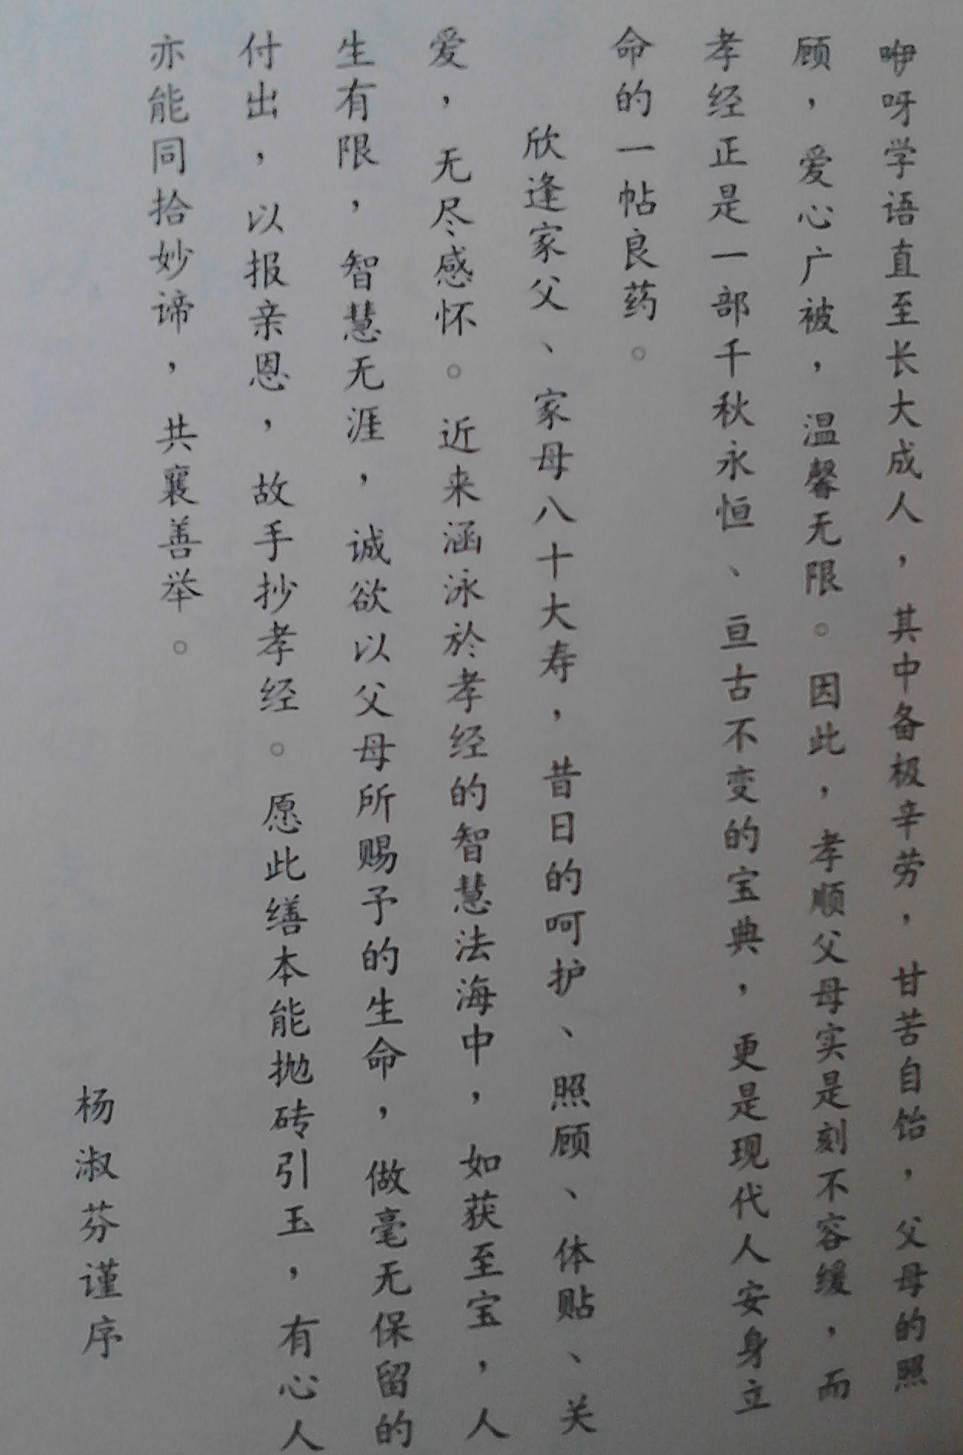 咿呀学语直至长大成人，其中备极辛劳，甘苦自饴，父母的照
顾，爱心广被，温馨无限。因此，孝顺父母实是刻不容缓，而
孝经正是一部千秋永恒、亘古不变的宝典，更是现代人安身立
命的一帖良药。
欣逢家父、家母八十大寿，昔日的呵护、照顾、体贴、关
爱，无尽感怀。近来涵泳於孝经的智慧法海中，如获至宝，人
生有限，智慧无涯，诚欲以父母所赐予的生命，做毫无保留的
付出，以报亲恩，故手抄孝经。愿此缮本能抛砖引玉，有心人
亦能同拾妙谛，共襄善举。
杨淑芬谨序